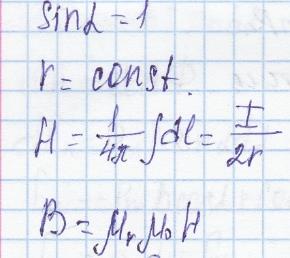 sinα = 1
r = const.
H = 1/4π ∫dl = I/2r
B = μr μ0 H